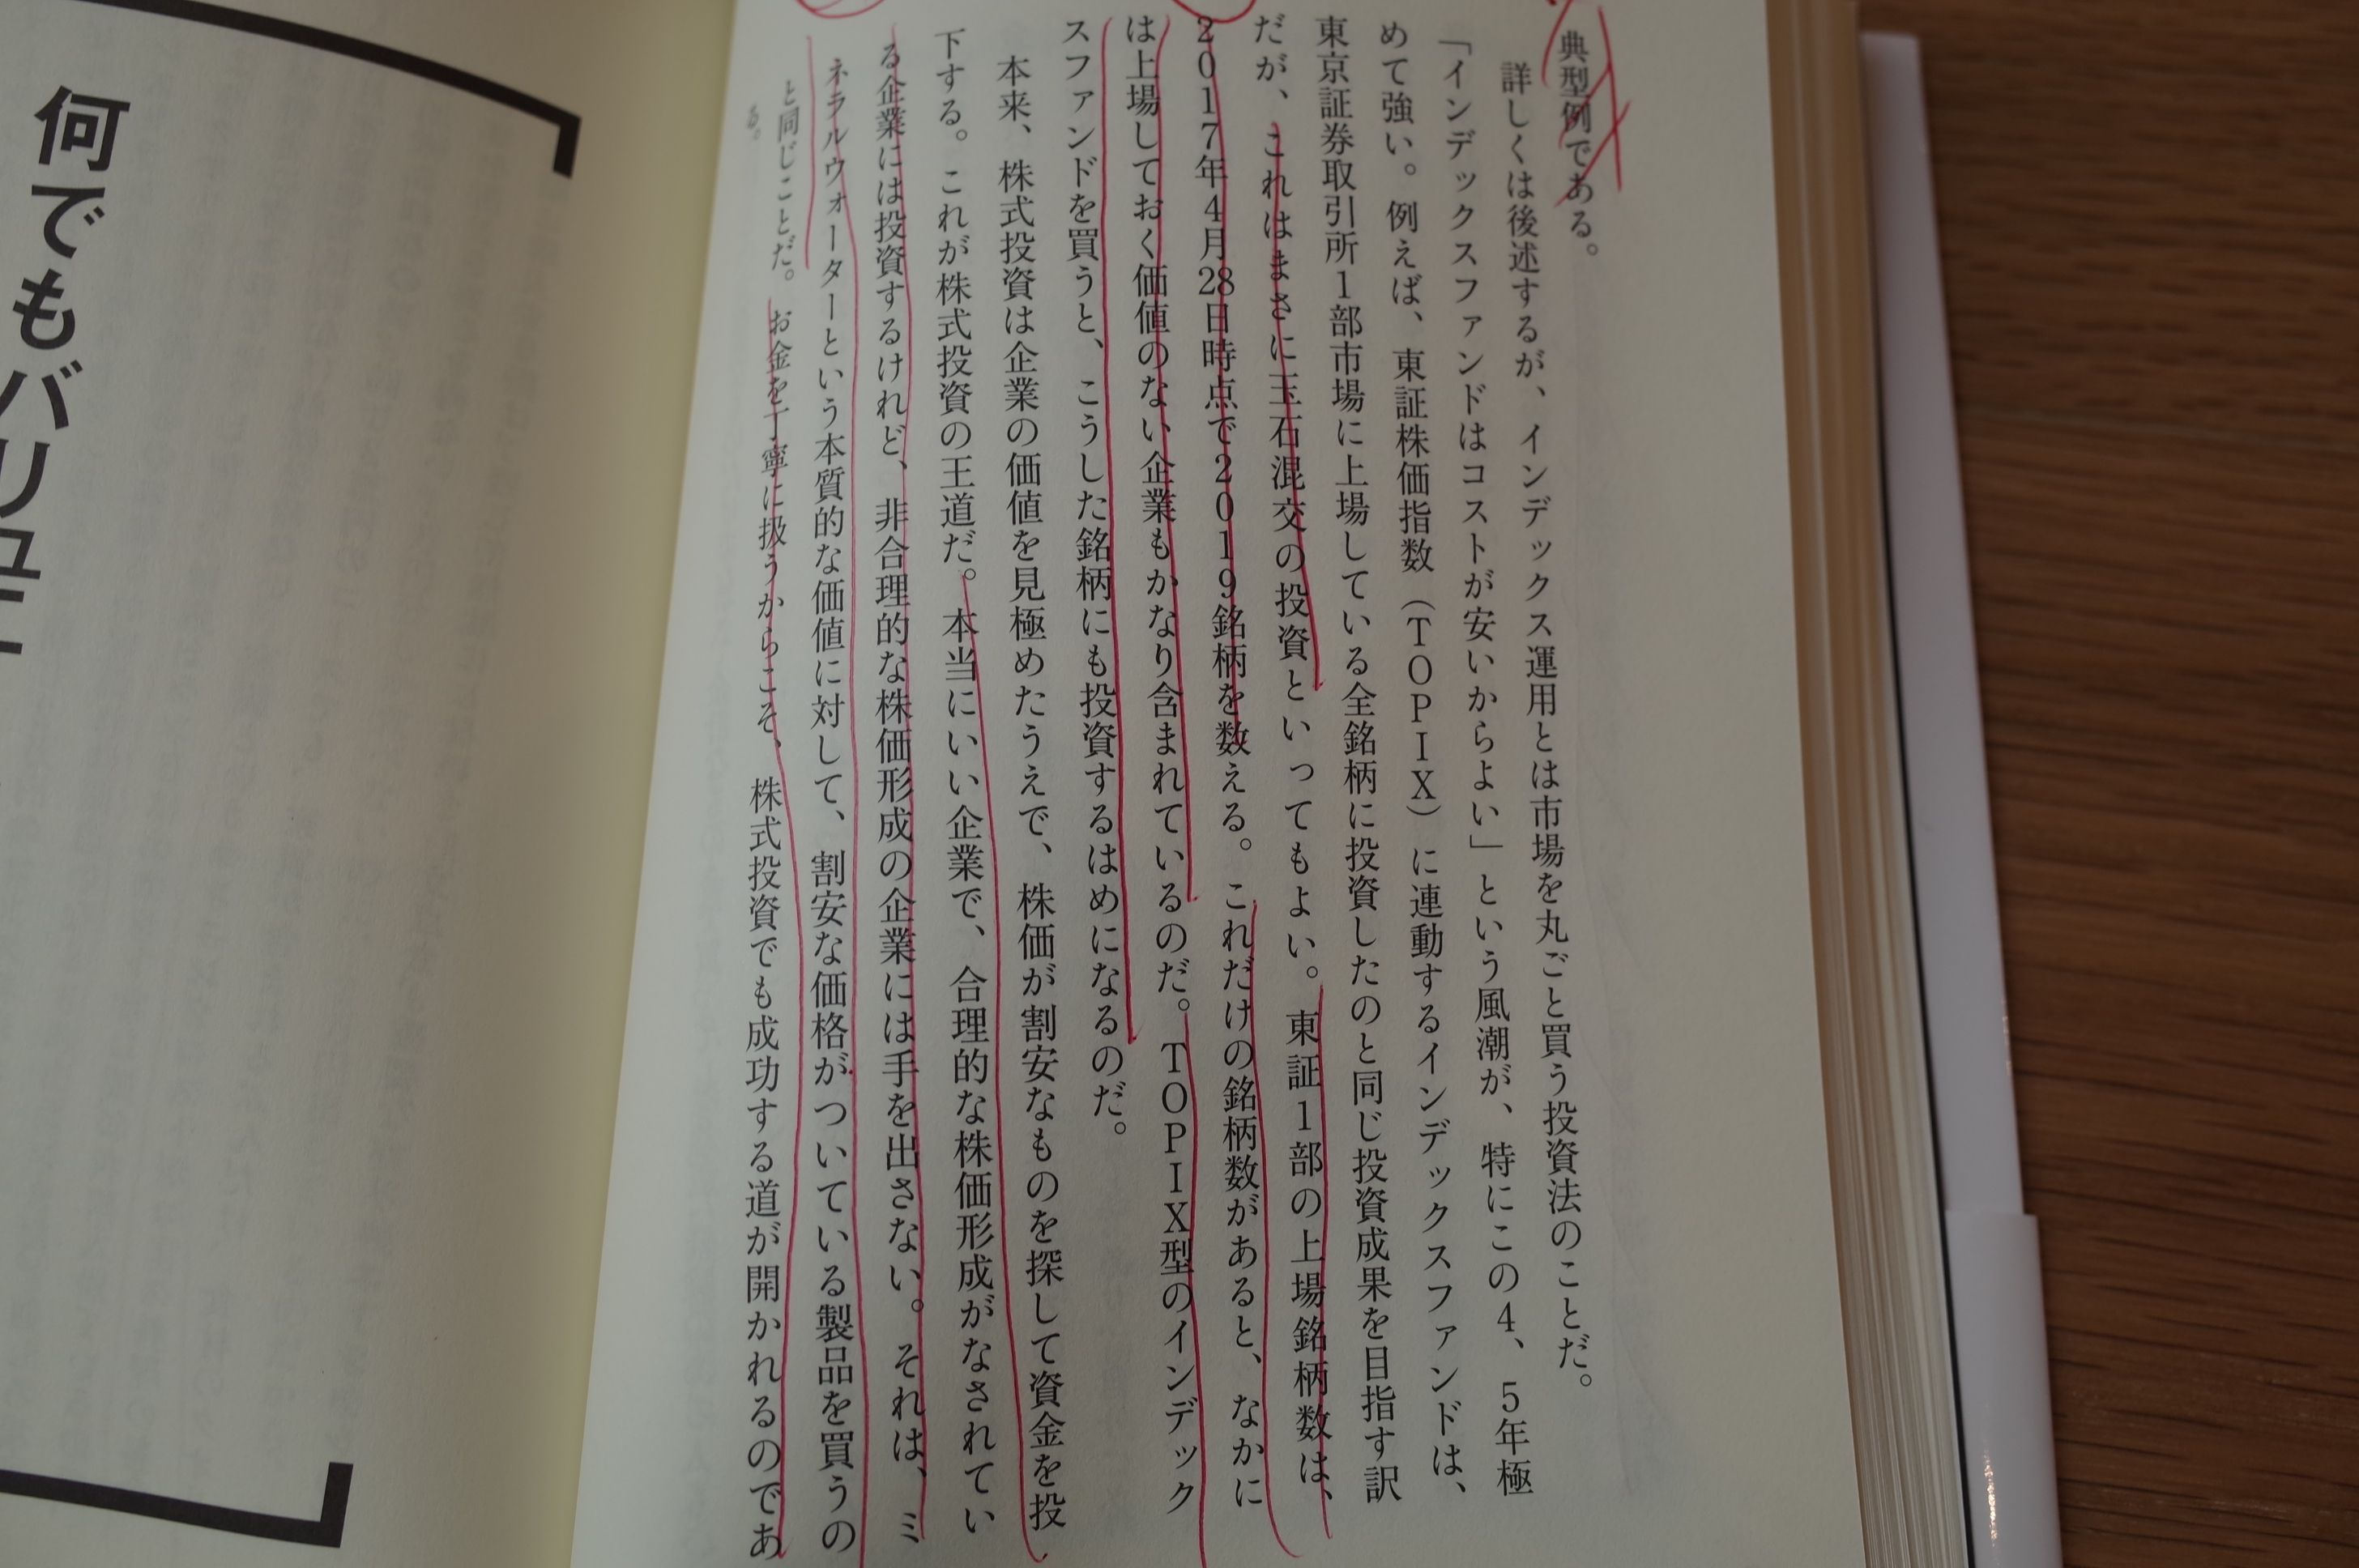 典型例である。
詳しくは後述するが、インデックス運用とは市場を丸ごと買う投資法のことだ。
「インデックスファンドはコストが安いからよい」という風潮が、特にこの4、5年極
めて強い。例えば、東証株価指数（TOPIX）に連動するインデックスファンドは、
東京証券取引所1部市場に上場している全銘柄に投資したのと同じ投資成果を目指す訳
だが、これはまさに玉石混交の投資といってもよい。東証1部の上場銘柄数は、
2017年4月28日時点で2019銘柄を数える。これだけの銘柄数があると、なかに
は上場しておく価値のない企業もかなり含まれているのだ。TOPIX型のインデック
スファンドを買うと、こうした銘柄にも投資するはめになるのだ。
本来、株式投資は企業の価値を見極めたうえで、株価が割安なものを探して資金を投
下する。これが株式投資の王道だ。本当にいい企業で、合理的な株価形成がなされてい
る企業には投資するけれど、非合理的な株価形成の企業には手を出さない。それは、ミ
ネラルウォーターという本質的な価値に対して、割安な価格がついている製品を買うの
と同じことだ。お金を丁寧に扱うからこそ、株式投資でも成功する道が開かれるのであ
る。
何でもバリュー